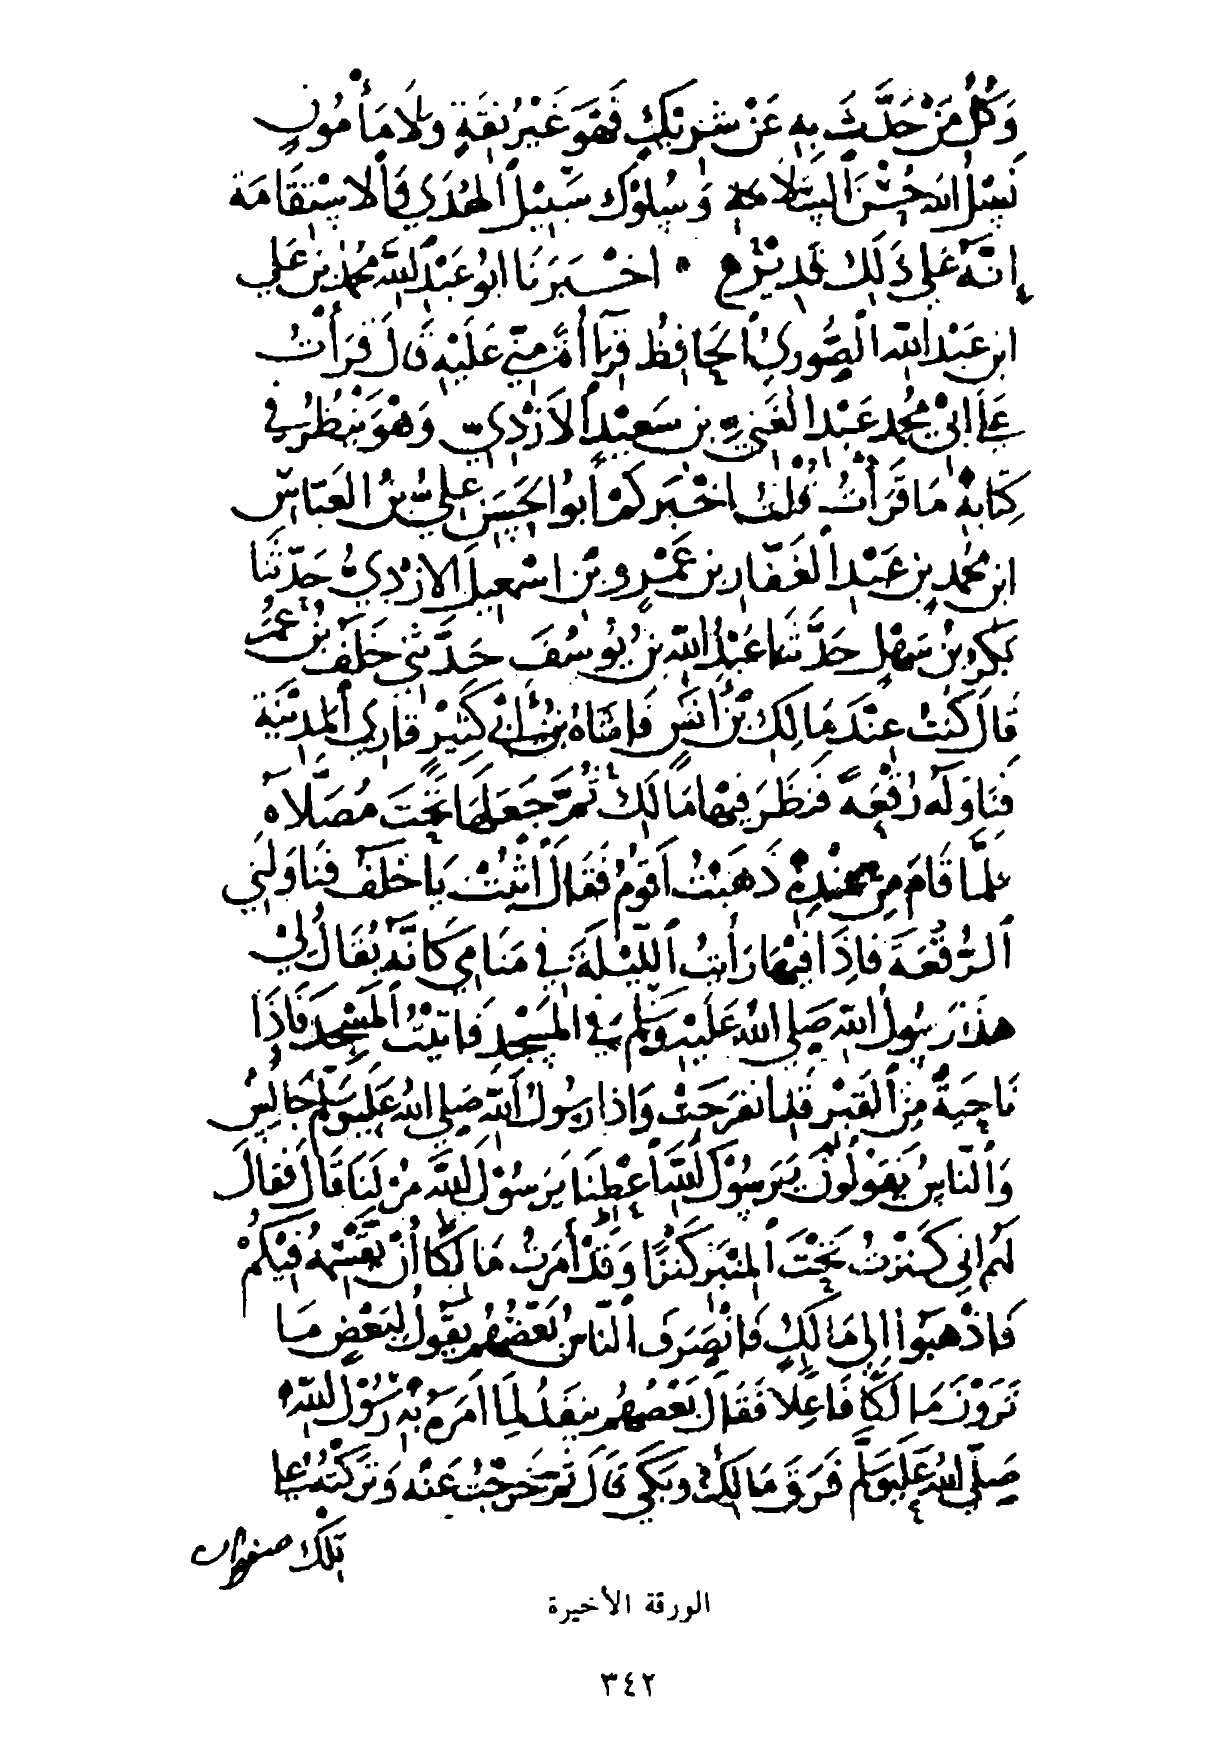 وَكُلُّ مَنْ حَدَّثَ بِهِ عَنْ شَرِيْكٍ فَهُوَ غَيْرُ ثِقَةٍ وَلَا مَأْمُونٍ
نَسْئَلُ اللهَ حُسْنَ السَّلَامَةِ وَسُلُوْكَ سَبِيْلَ الهُدَي وَالاسْتِقَامَة
إِنَّهُ عَلَى ذَلِكَ قَدِيْرٌ اخْبَرَنَا ابُو عَبْدِ اللَّهِ مُحَمَّدُ بْنُ عَلي
ابن عَبْدِ اللهِ الصُّورِيُّ الحَافِظُ قِرَاأَةً مِنّي عَلَيْهِ قَالَ قَرَأْتُ
عَلَى ابِيْ مُحَمَّد عَبْدِ الغَنِيّ بن سَعِيْدٍ الأَزْدِيّ وَهْوَ يَنْظُرُ فِي
كِتَابِهِ مَا قَرَأْتُ قُلْتُ اخْبَرَكُمْ أَبُوا الحَسَنِ عَلِيُّ بْنُ العَبَّاسِ
ابن مُحَمَّدِ بنِ عَبْدِ الغَفَّارِ بن عَمْرِو بْن اسْمعِيلَ الازْدِيُّ حَدَّثَنَا
بَكْرُ بْنُ سَهْلٍ حَدَّثَنَا عَبْدُ اللهِ بْنُ يُوسُفَ حَدَّثَنِي خَلَفُ بْنُ عُمَرَ
قَالَ كُنْتُ عِنْدَ مَالِكِ بْنِ أَنَسٍ فَاتَاهُ بْنُ أَبِي كَثِيْرٍ قَارِي المَدِيْنَةِ
فَنَاوَلَهُ رُقْعَةً فَنَظَرَ فِيْهَا مَالِكٌ ثُمَّ جَعَلَهَا تَحْتَ مُصَلَّاهُ
فَلَمَّا قَامَ مِنْ عِنْدِهِ ذَهَبْتُ اَقُومُ فَقَالَ اثْبُتْ يَا خَلَفُ فَنَاوَلَنِي
الرُّقْعَةَ فَاِذَا فِيْهَا رَأَيْتُ اللَّيْلَةَ فِي مَنَامِي كَانَّهُ يُقَالُ لِيْ
هذَا رَسُولُ اللهِ صَلَّى اللهُ عَلَيْهِ وَسَلَّمَ فِي المَسْجِدِ فَاتَيْتُ المَسْجِدَ فَاذَا
نَاحِيَةٌ مِنَ القَبْرِ قَد انفَرَجَتْ وَاذا رَسُولُ اللهِ صَلّى اللهُ عَلَيْهِ وَسَلَّمَ جَالِسٌ
وَالنّاسُ يَقُوْلُونَ يَرَسُوْلَ اللهِ أَعْطِنَا يَرَسُوْلَ اللهِ مُرْ لَنَا قَالَ فَقَالَ
لَهُم اني كَنَزْتُ تَحْتَ المِنْبَرِ كَنْزًا وَقَدْ أَمَرْتُ مَالِكًا أَنْ يَقْسِمَهُ فِيْكُمْ
فَاذْهَبُوا اِلى مَالِكٍ فَانْصَرَفَ النَّاسُ بَعْضُهُم يَقُولُ لِبَعْضٍ مَا
تَرَوْنَ مَالِكًا فَاعِلا فَقَالَ بَعْضُهُم يَنْفُذُ لِمَا اَمَرَهُ بِهِ رَسُوْلُ اللهِ
صَلّى اللهُ عَلَيْهِ وَسَلَّمَ فَرَقَّ مَالِكٌ وَبَكَى قَالَ ثمَّ خَرَجْتُ عَنْهُ وَتَرَكْتُهُ عَلى
تِلْكَ
الورقة الأخيرة
٣٤٢